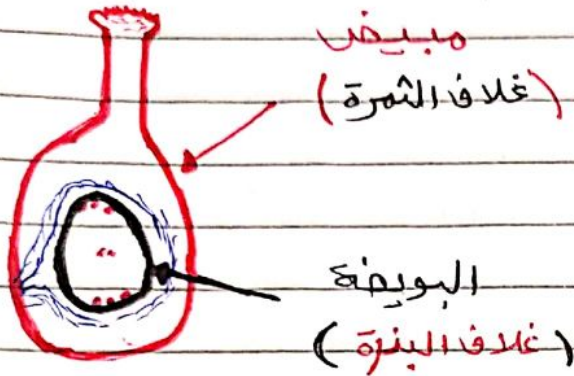 مبيض
(غلاف الثمرة)
البويضة
(غلاف البذرة)